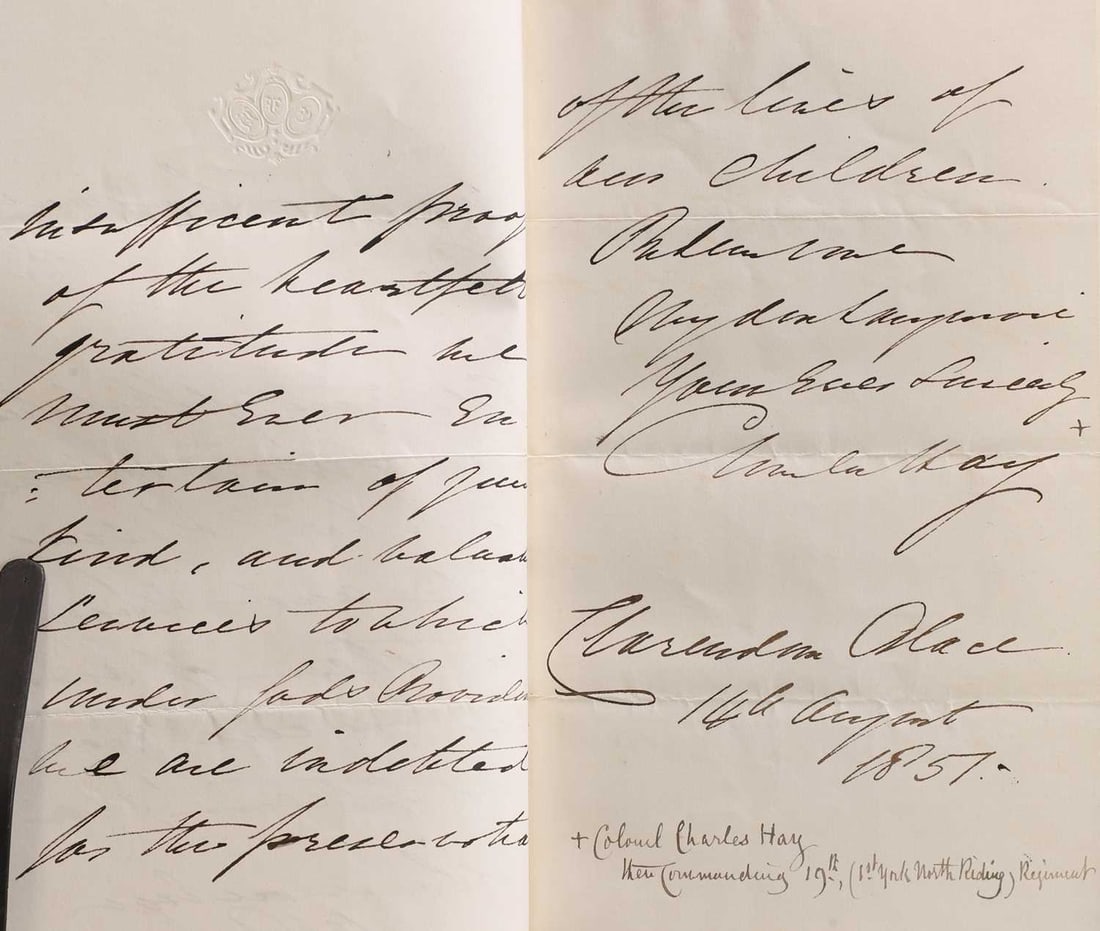 insufficient proof
of the heartfelt
gratitude we
must Ever En
: tertain of your
kind, and valuab
Services to which
under God's Provide
we are indebted
for the preservatio
of the lives of
our children.
Believe me
My dear
Yours Ever Sincerely
+
Charles Hay
Clarendon Place.
14th August
1851.
+ Colonel Charles Hay
then Commanding 19th, (1st York North Riding) Regiment